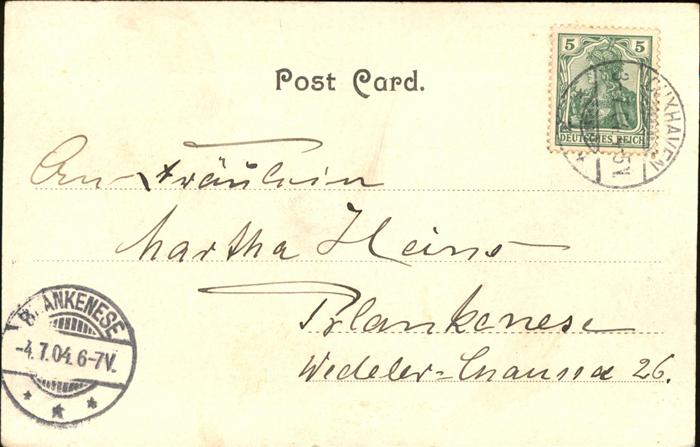 Post Card.
5 5
DEUTSCHES REICH
CUXHAVEN
An Fräulein
Martha Heins
Blankenese
Wedeler-Chaussee 26.
BLANKENESE
-4.7.04.6-7V.